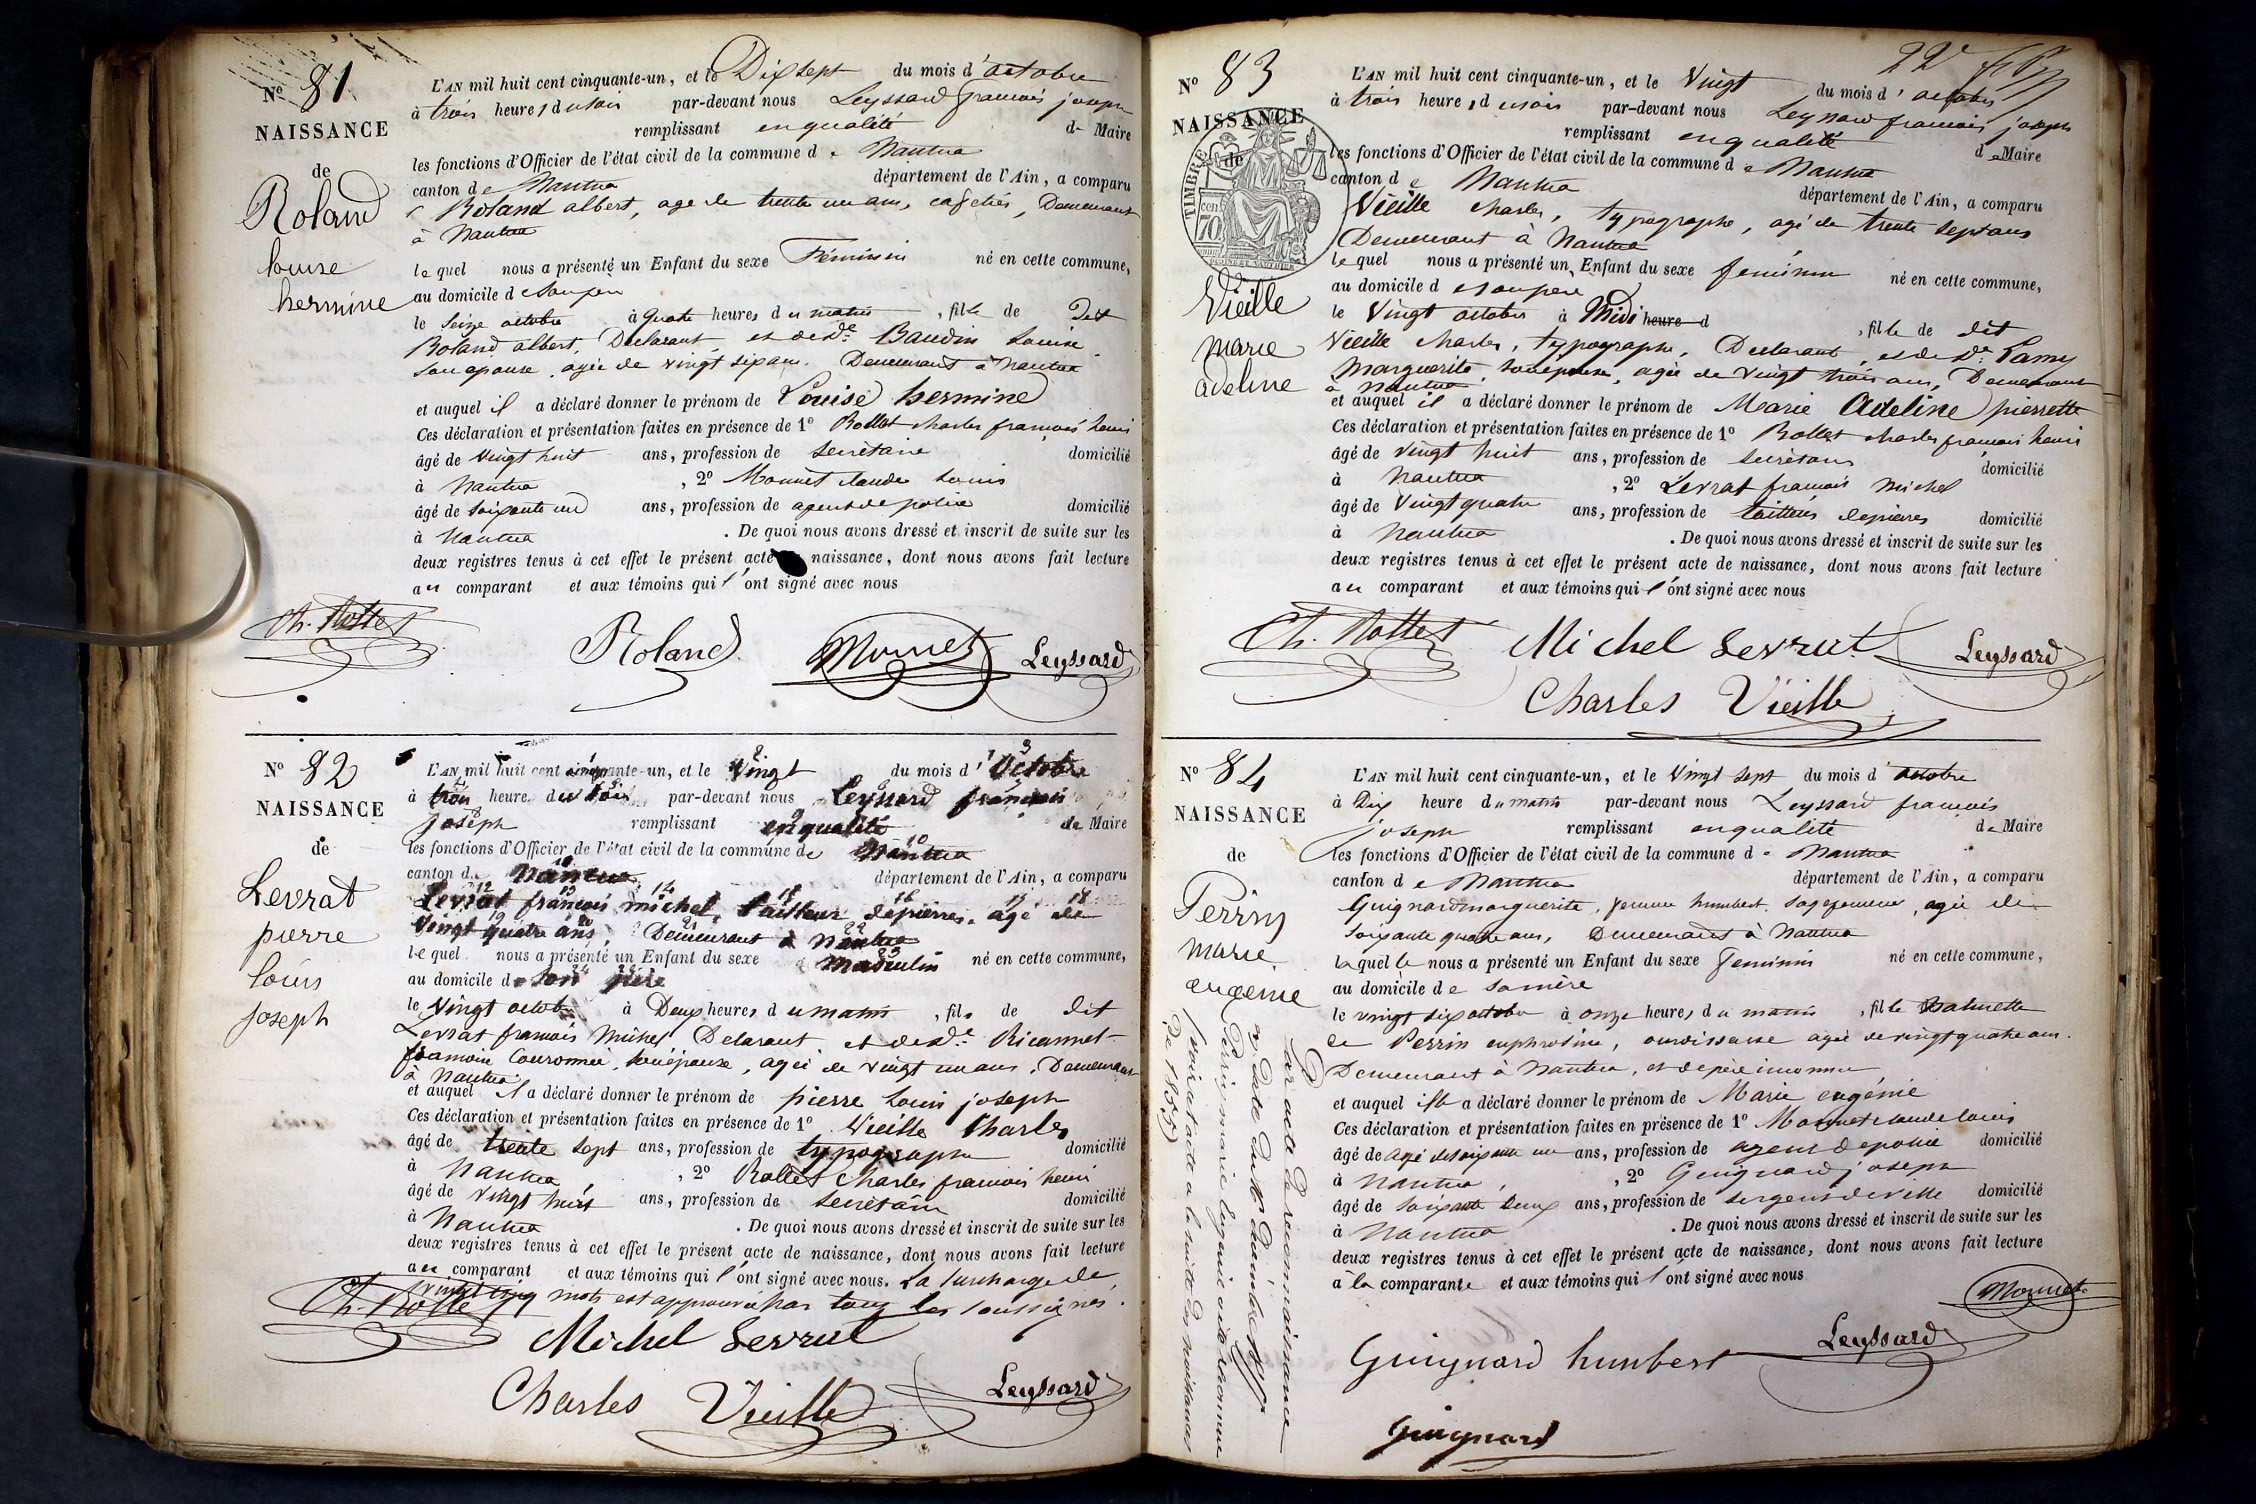 Nº 81
NAISSANCE
de
Roland
louise
hermine
L'AN mil huit cent cinquante-un, et le Dix sept du mois d'octobre
à trois heures du soir par-devant nous Leyssard françois joseph
remplissant en qualité de Maire
les fonctions d'Officier de l'état civil de la commune de Nantua
canton de Nantua département de l'Ain, a comparu
Roland albert, age de trente un ans, cafetier, Demeurant
à Nantua
lequel nous a présenté un Enfant du sexe Féminin né en cette commune,
au domicile de son pere
le Seize octobre à quatre heures du matin, fille de Dit
Roland albert, Declarant et de de. Baudin Louise
son épouse, agée de vingt six ans. Demeurant à Nantua
et auquel il a déclaré donner le prénom de Louise hermine
Ces déclaration et présentation faites en présence de 1º Rollet charles françois henri
âgé de vingt huit ans, profession de secrétaire domicilié
à Nantua, 2º Monnet claude Louis
âgé de soixante un ans, profession de agent de police domicilié
à Nantua. De quoi nous avons dressé et inscrit de suite sur les
deux registres tenus à cet effet le présent acte naissance, dont nous avons fait lecture
au comparant et aux témoins qui l'ont signé avec nous
Ch. Rollet Roland Monnet Leyssard
Nº 82
NAISSANCE
de
Levrat
pierre
louis
joseph
L'AN mil huit cent cinquante-un, et le Vingt du mois d'Octobre
à trois heures du soir, par-devant nous Leyssard françois
joseph remplissant en qualité de Maire
les fonctions d'Officier de l'état civil de la commune de Nantua
canton de Nantua département de l'Ain, a comparu
Levrat françois michel, tailleur de pierres, agé de
Vingt quatre ans, Demeurant à Nantua
lequel nous a présenté un Enfant du sexe masculin né en cette commune,
au domicile de son père
le Vingt octobre à Deux heures du matin, fils de dit
Levrat françois Michel Declarant et de de.
Couronne, son épouse, agée de vingt un ans, Demeurant
à Nantua
et auquel il a déclaré donner le prénom de pierre Louis joseph
Ces déclaration et présentation faites en présence de 1º Vieille Charles
âgé de trente sept ans, profession de typographe domicilié
à Nantua, 2º Rollet charles françois henri
âgé de vingt huit ans, profession de secrétaire domicilié
à Nantua. De quoi nous avons dressé et inscrit de suite sur les
deux registres tenus à cet effet le présent acte de naissance, dont nous avons fait lecture
au comparant et aux témoins qui l'ont signé avec nous. La surcharge de
vingt cinq mots est approuvée par tous les soussignés.
Ch. Rollet
Michel Levrat
Charles Vieille Leyssard
22
Nº 83
NAISSANCE
de
TIMBRE
cen
70
Vieille
marie
adeline
L'AN mil huit cent cinquante-un, et le Vingt du mois d'octobre
à trois heures du soir par-devant nous Leyssard françois joseph
remplissant en qualité de Maire
les fonctions d'Officier de l'état civil de la commune de Nantua
canton de Nantua département de l'Ain, a comparu
Vieille charles, typographe, agé de trente sept ans
Demeurant à Nantua
lequel nous a présenté un Enfant du sexe feminin né en cette commune,
au domicile de son pere
le Vingt octobre à Midi heure d, fille de dit
Vieille charles, typographe, Declarant, et de de. Lamy
Marguerite, son épouse, agée de vingt trois ans, Demeurant
à Nantua
et auquel il a déclaré donner le prénom de Marie Adeline pierrette
Ces déclaration et présentation faites en présence de 1º Rollet charles françois henri
âgé de vingt huit ans, profession de secrétaire domicilié
à Nantua, 2º Levrat françois Michel
âgé de Vingt quatre ans, profession de tailleur de pierres domicilié
à Nantua. De quoi nous avons dressé et inscrit de suite sur les
deux registres tenus à cet effet le présent acte de naissance, dont nous avons fait lecture
au comparant et aux témoins qui l'ont signé avec nous
Ch. Rollet Michel Levrat Leyssard
Charles Vieille
Nº 84
NAISSANCE
de
Perrin
marie
eugenie
Par acte de reconnaissance
Perrin marie Eugénie a été reconnue
L'AN mil huit cent cinquante-un, et le Vingt sept du mois d'octobre
à Dix heure du matin par-devant nous Leyssard françois
joseph remplissant en qualité de Maire
les fonctions d'Officier de l'état civil de la commune de Nantua
canton de Nantua département de l'Ain, a comparu
Guignard marguerite, femme humbert, sage femme, agée de
soixante quatre ans, Demeurant à Nantua
laquelle nous a présenté un Enfant du sexe Feminin né en cette commune,
au domicile de sa mère
le vingt six octobre à onze heures du matin, fille naturelle
de Perrin euphrosine, ourdisseuse agée de vingt quatre ans.
Demeurant à Nantua, et de père inconnu
et auquel elle a déclaré donner le prénom de Marie eugénie
Ces déclaration et présentation faites en présence de 1º Monnet claude louis
âgé de agé de soixante un ans, profession de agent de police domicilié
à Nantua, 2º Guignard joseph
âgé de soixante deux ans, profession de sergent de ville domicilié
à Nantua. De quoi nous avons dressé et inscrit de suite sur les
deux registres tenus à cet effet le présent acte de naissance, dont nous avons fait lecture
a la comparante et aux témoins qui l'ont signé avec nous
Monnet
Guignard humbert Leyssard
Guignard